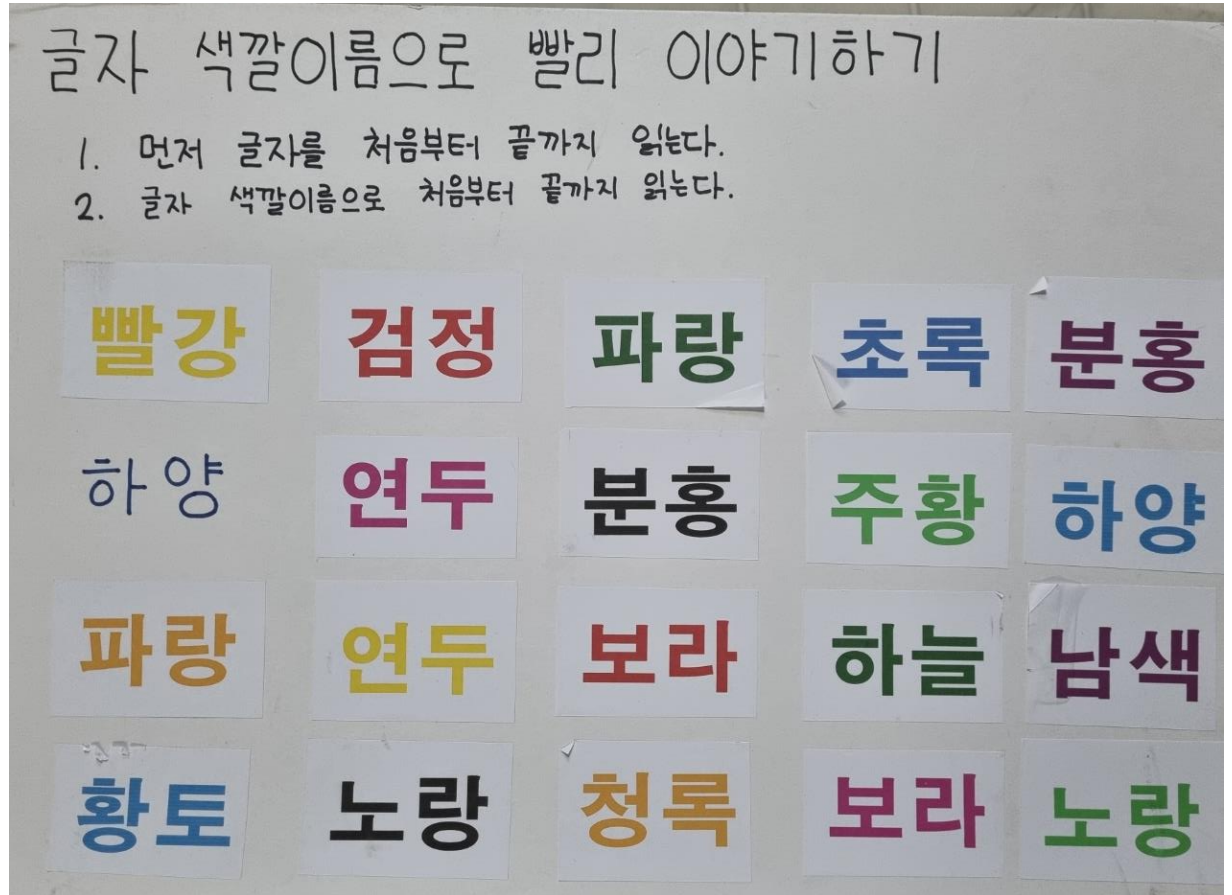 글자 색깔이름으로 빨리 이야기하기
1. 먼저 글자를 처음부터 끝까지 읽는다.
2. 글자 색깔이름으로 처음부터 끝까지 읽는다.
빨강 검정 파랑 초록 분홍
하양 연두 분홍 주황 하양
파랑 연두 보라 하늘 남색
황토 노랑 청록 보라 노랑